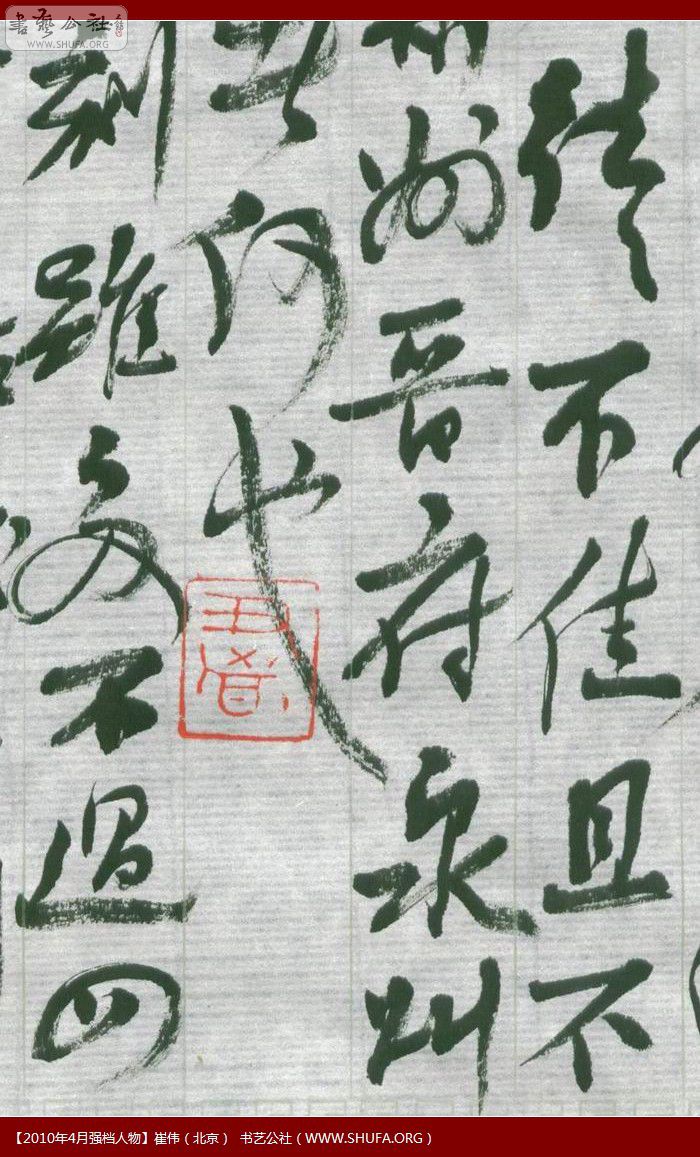 書藝公社
【WWW.SHUFA.ORG】
不佳且不
晋府泉州
何也
刻雖多不過四
【2010年4月强档人物】崔伟（北京） 书艺公社（WWW.SHUFA.ORG）